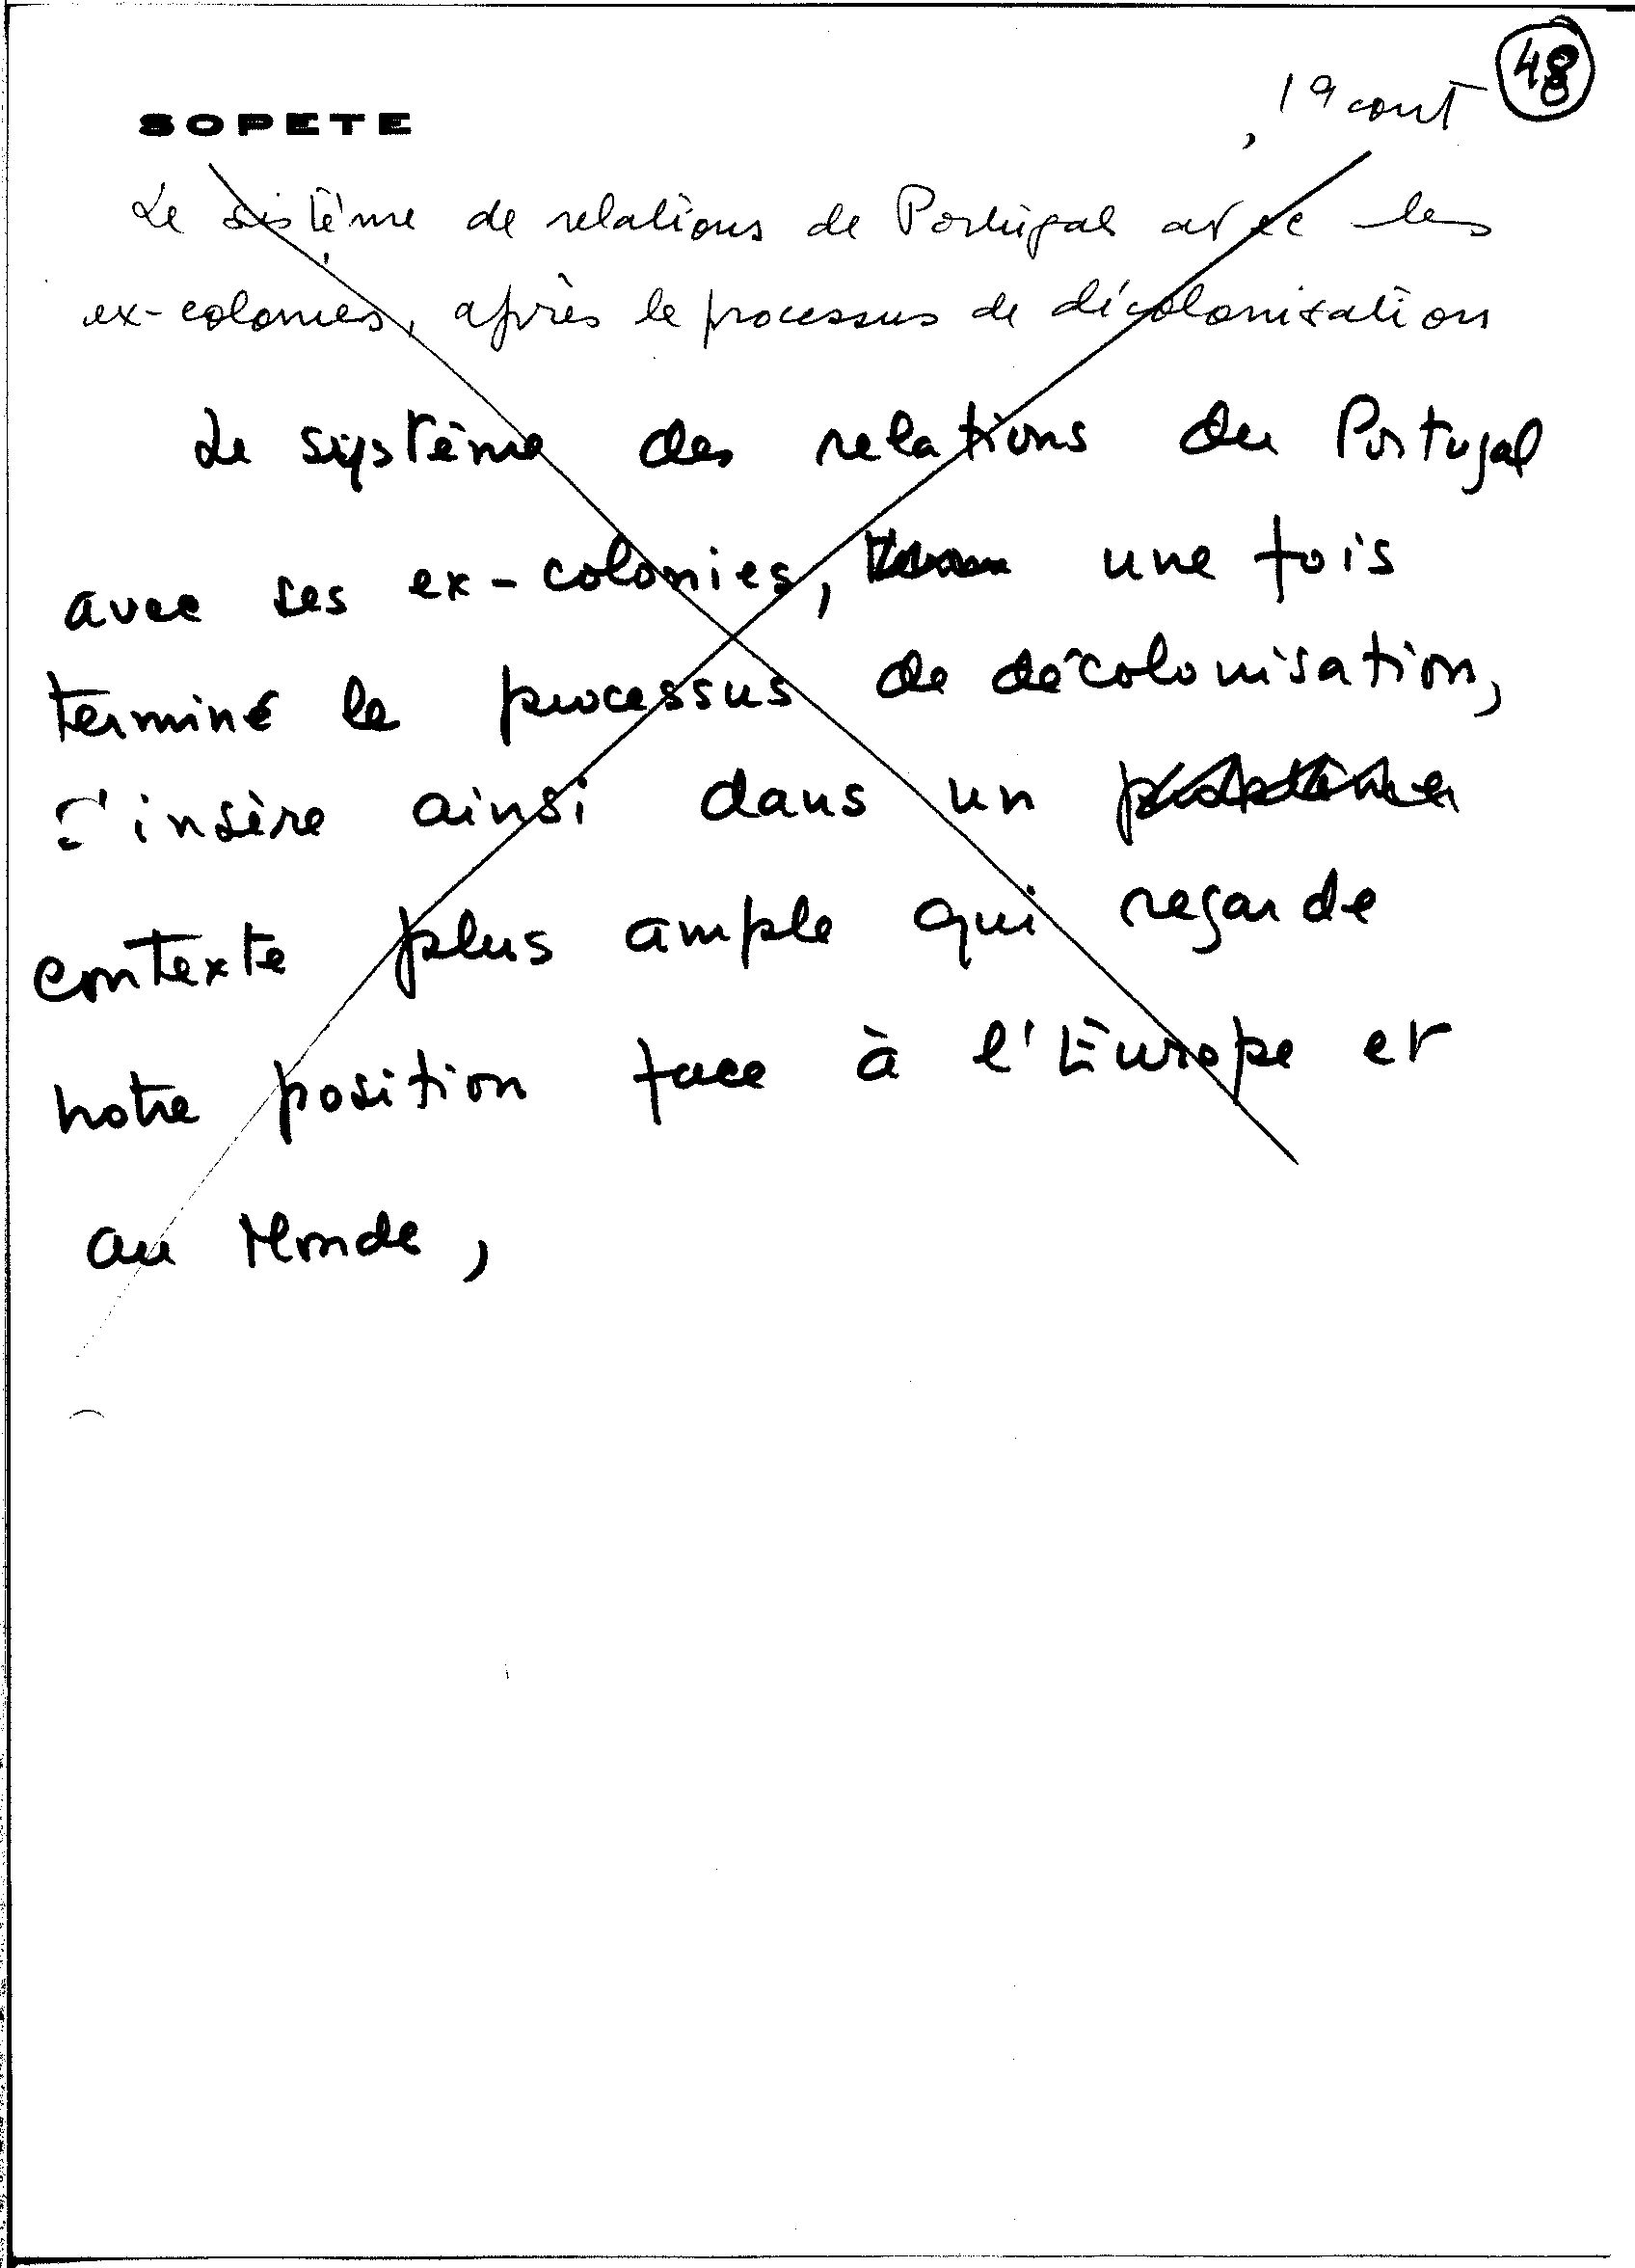 48
19 cont
SOPETE
Le sistème de relations de Portugal avec les
ex-colonies, après le processus de décolonisation
Le système des relations du Portugal
avec ses ex-colonies, une fois
terminé le processus de décolonisation,
s'insère ainsi dans un
contexte plus ample qui regarde
notre position face à l'Europe et
au Monde,